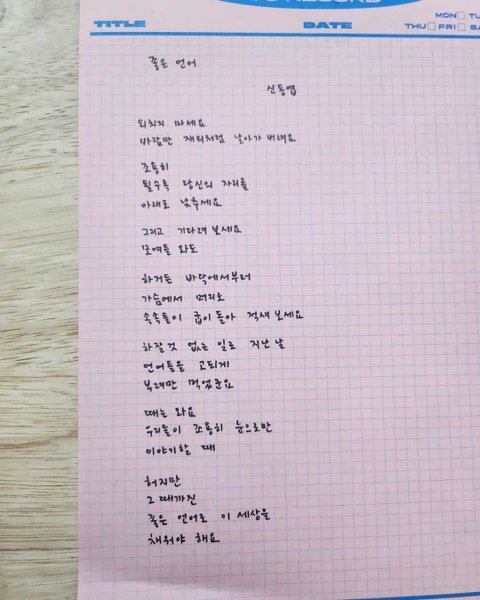 RECORD
MON□ TU
TITLE DATE THU□ FRI□ SA
좋은 언어
신동엽
외치지 마세요
바람만 재티처럼 날아가 버려요
조용히
될수록 당신의 자리를
아래로 낮추세요
그리고 기다려 보세요
모여들 와도
하거든 바닥에서부터
가슴에서 머리로
속속들이 굽이 돌아 적셔 보세요
하잘것 없는 일로 지난 날
언어들을 고되게
부려만 먹었군요
때는 와요
우리들이 조용히 눈으로만
이야기할 때
허지만
그 때까진
좋은 언어로 이 세상을
채워야 해요